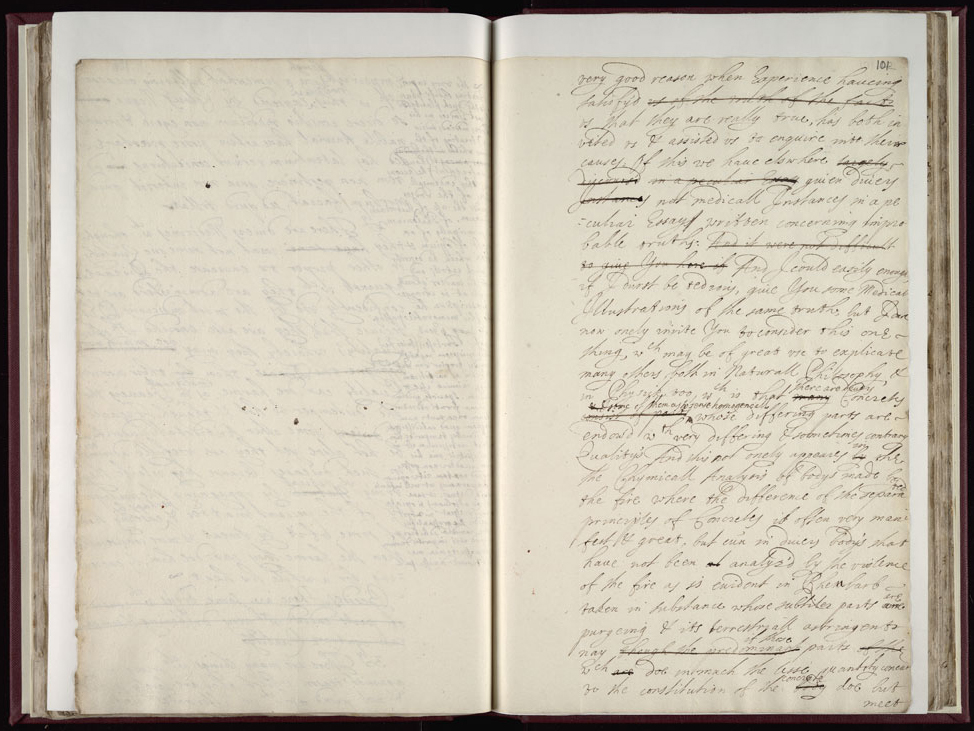 101
very good reason when Experience haueing
satisfyd us of the truth of the facts
is that they are really true, has both in
vited us & assisted us to enquire into their
causes. Of this we have elswhere largely
discoursd in a peculiar Essay giuen diuers
Instances not medicall Instances in a pe
-culiar Essay, written concerning impro
bable truths: And it were not difficult
to giue You here it And I could easily enough
if I durst be tedious, giue You some Medical
Illustrations of the same truth, but I dare
now onely invite You to consider this one
thing, wch may be of great use to explicate
many others both in Naturall Philosophy &
in Physick too, wch is that many there are Concrets
some of them homogeneall whose differing parts are
endowd wth very differing & sometimes contrary
Qualitys And this not onely appeares in the
the Chymicall Analysis of bodys made by
the fire where the difference of the
principles of Concretes is often very mani
fest & great, but eu'n in diuers bodys that
have not been analyz'd by the violence
of the fire as is euident in Rhubarb
taken in substance whose subtiler parts are
purgeing & its terrestriall astringent
nay though the predominant parts of the
wch doe inomuch the quantity
to the constitution of the concrete doe but
meet